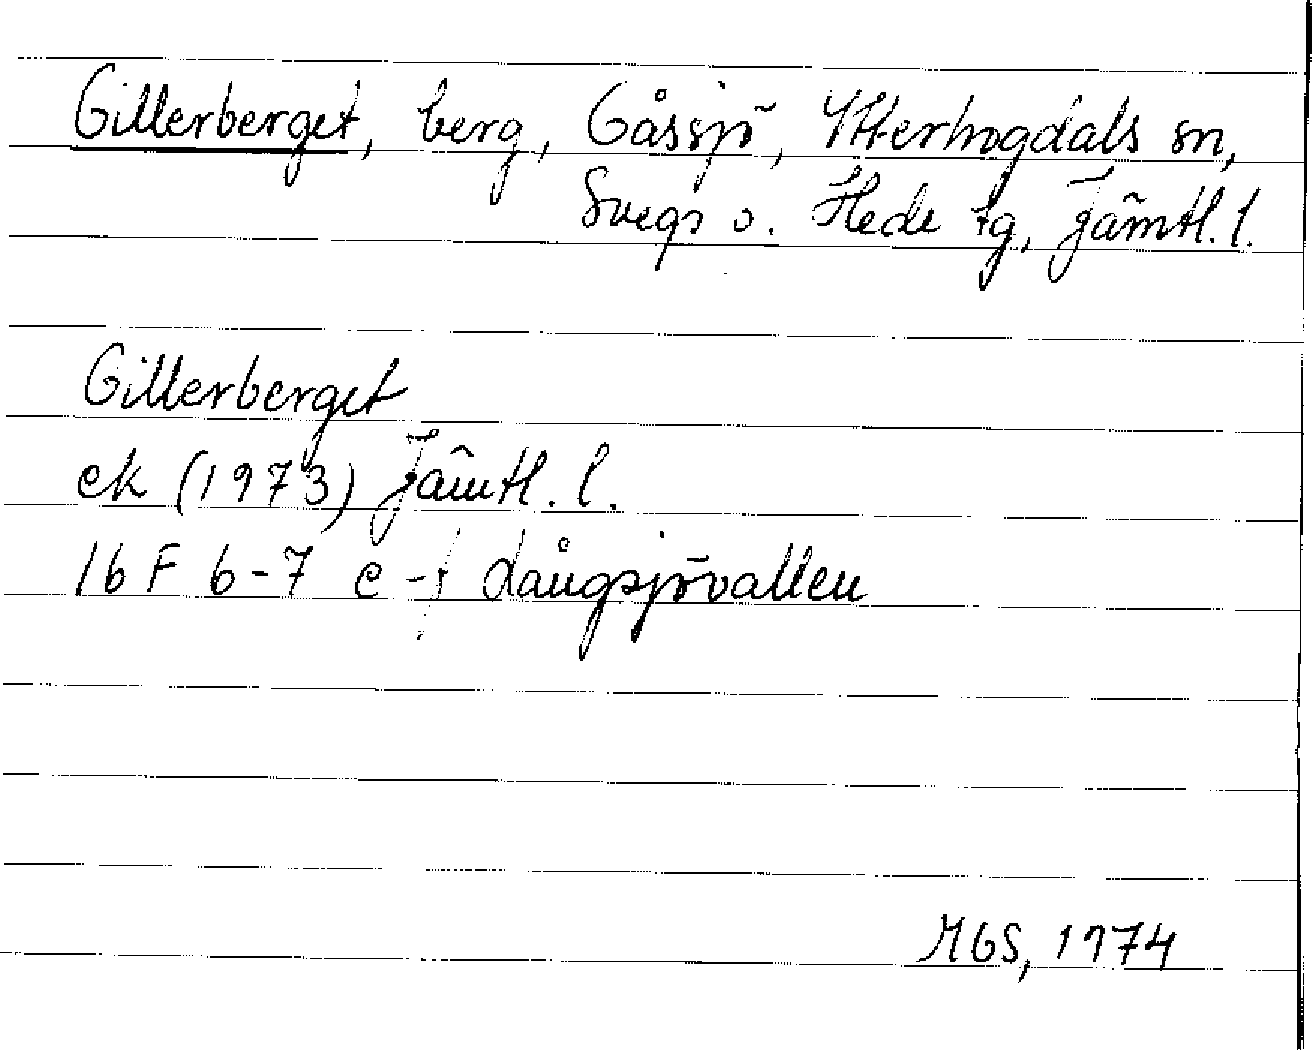 Gillerberget, berg, Gåssjö, Ytterhogdals sn,
Svegs o. Hede tg, Jämtl. l.
Gillerberget
ek (1973) Jämtl. l.
16 F 6-7 e-f Långsjövallen
MGS, 1974